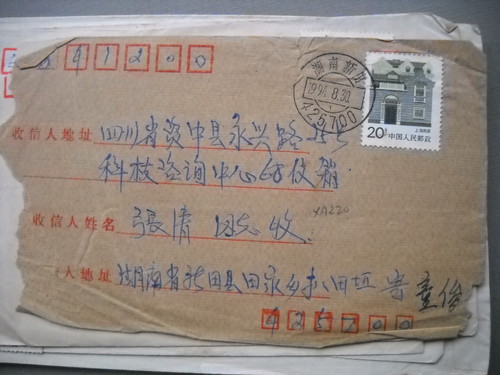 641200
湖南新田
1994.8.30
425700
上海民居
20分 中国人民邮政
收信人地址 四川省资中县永兴路
科技咨询中心
收信人姓名 張清 同志收
XA220
人地址 湖南省新田县田家乡 田垣 寄
425700